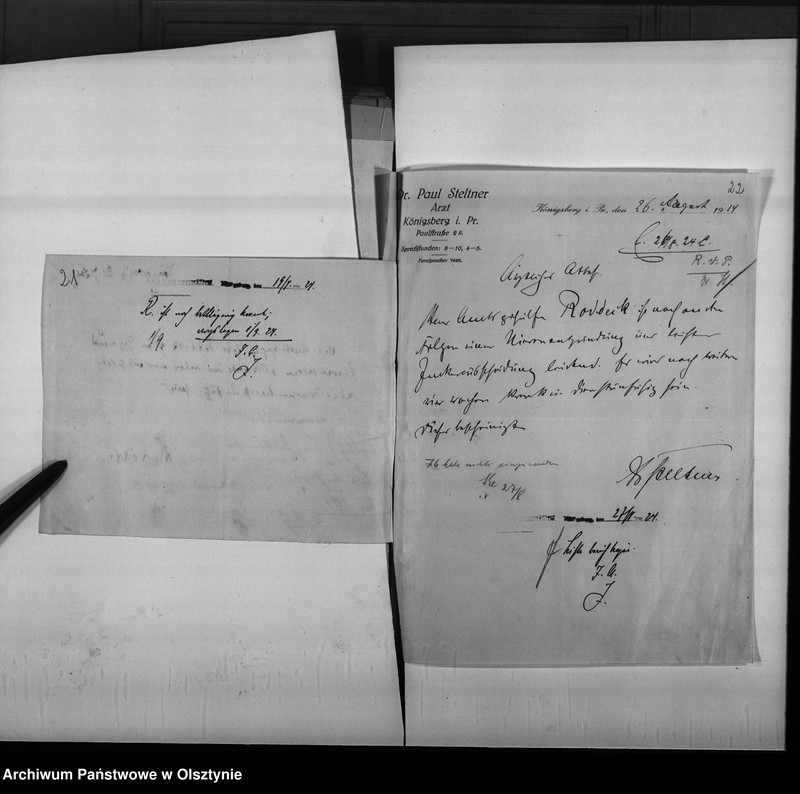 21
18/8. 24.
R. ist noch
vorgelegen 1/9. 24.
1/9.
J. A.
J.
22
Dr. Paul Steltner
Arzt
Königsberg i. Pr.
Paulstraße 2 II.
Sprechstunden: 8–10, 4–5.
Fernsprecher 7669.
Königsberg i. Pr., den 26. August 1924
R. v. P.
Ärztliches Attest.
Herr Amtsgehilfe Roddeck ist noch an den
Folgen einer Nierenentzündung und leichter
Zuckerausscheidung leidend. Er wird noch weitere
vier Wochen krank u. dienstunfähig sein.
Dies bescheinigt
Ich habe nichts einzuwenden
27/8
Dr Steltner
27/8. 24.
Liste berichtigen.
J. A.
J.
Archiwum Państwowe w Olsztynie